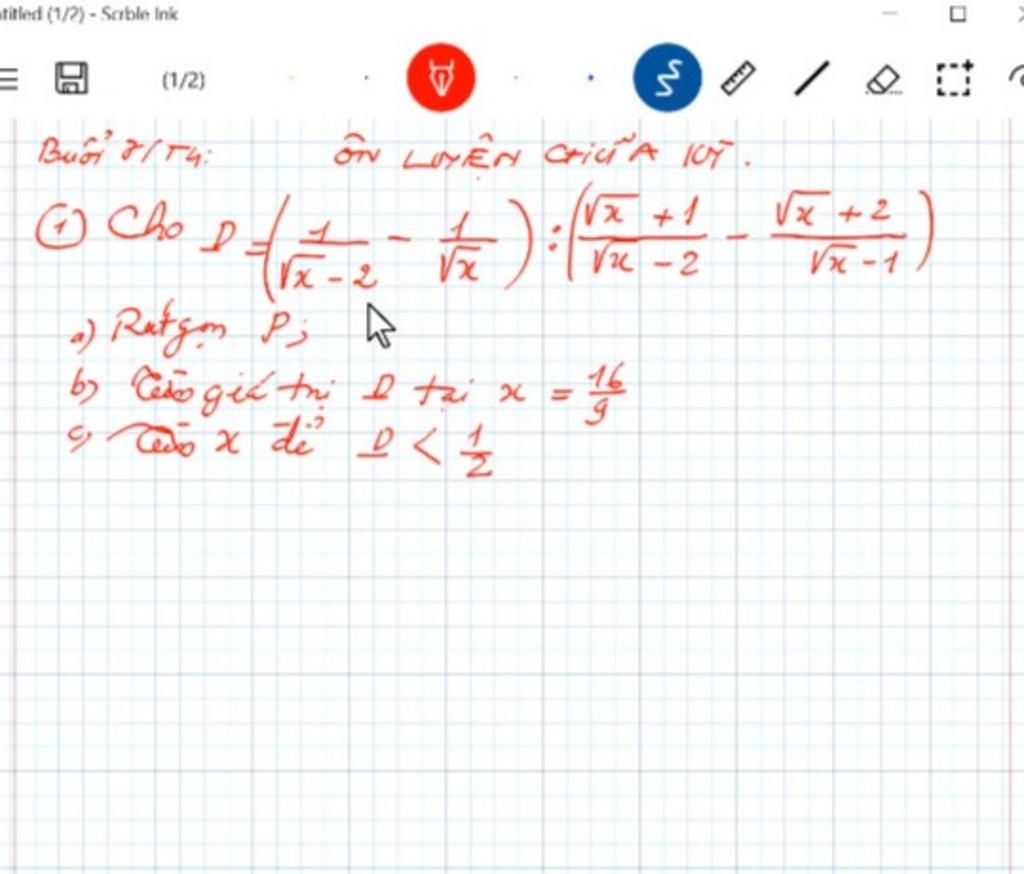 ntitled (1/2) - Scrble Ink
(1/2)
Buổi 7/T4: ÔN LUYỆN GIỮA KỲ.
① Cho D = (1/(√x - 2) - 1/√x) : ((√x + 1)/(√x - 2) - (√x + 2)/(√x - 1))
a) Rút gọn P;
b) giá trị D tại x = 16/9
c) x để D < 1/2